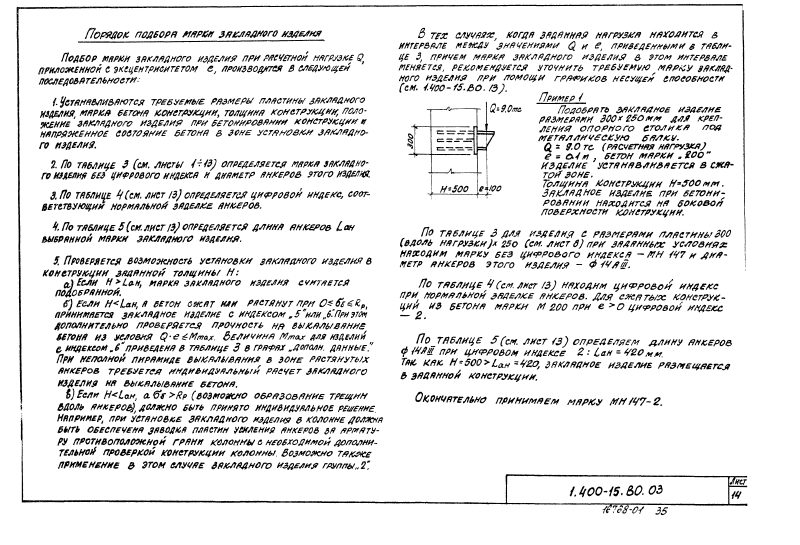 Порядок подбора марки закладного изделия
Подбор марки закладного изделия при расчетной нагрузке Q,
приложенной с эксцентриситетом е, производится в следующей
последовательности:
1. Устанавливаются требуемые размеры пластины закладного
изделия, марка бетона конструкции, толщина конструкции, поло-
жение закладного изделия при бетонировании конструкции и
напряженное состояние бетона в зоне установки закладно-
го изделия.
2. По таблице 3 (см. листы 1÷13) определяется марка закладно-
го изделия без цифрового индекса и диаметр анкеров этого изделия.
3. По таблице 4 (см. лист 13) определяется цифровой индекс, соот-
ветствующий нормальной заделке анкеров.
4. По таблице 5 (см. лист 13) определяется длина анкеров Lан
выбранной марки закладного изделия.
5. Проверяется возможность установки закладного изделия в
конструкции заданной толщины Н:
а) Если Н > Lан, марка закладного изделия считается
подобранной.
б) Если Н < Lан, а бетон сжат или растянут при 0 ≤ бб ≤ Rр,
принимается закладное изделие с индексом „5" или „6". При этом
дополнительно проверяется прочность на выкалывание
бетона из условия Q·e ≤ Mmax. Величина Mmax для изделий
с индексом „6" приведена в таблице 3 в графах „Дополн. данные".
При неполной пирамиде выкалывания в зоне растянутых
анкеров требуется индивидуальный расчет закладного
изделия на выкалывание бетона.
в) Если Н < Lан, а бб > Rр (возможно образование трещин
вдоль анкеров), должно быть принято индивидуальное решение.
Например, при установке закладного изделия в колонне должна
быть обеспечена заводка пластин усиления анкеров за армату-
ру противоположной грани колонны с необходимой дополни-
тельной проверкой конструкции колонны. Возможно также
применение в этом случае закладного изделия группы „2".
В тех случаях, когда заданная нагрузка находится в
интервале между значениями Q и е, приведенными в табли-
це 3, причем марка закладного изделия в этом интервале
меняется, рекомендуется уточнить требуемую марку заклад-
ного изделия при помощи графиков несущей способности
(см. 1.400-15.ВО.13).
Пример 1
Q=9.0тс
300
Н=500
е=100
Подобрать закладное изделие
размерами 300×250 мм для креп-
ления опорного столика под
металлическую балку.
Q = 9.0 тс (расчетная нагрузка)
е = 0.1 м, бетон марки „200"
изделие устанавливается в сжа-
той зоне.
Толщина конструкции Н=500 мм.
Закладное изделие при бетони-
ровании находится на боковой
поверхности конструкции.
По таблице 3 для изделия с размерами пластины 300
(вдоль нагрузки)×250 (см. лист 8) при заданных условиях
находим марку без цифрового индекса – МН 147 и диа-
метр анкеров этого изделия – ф 14 АIII.
По таблице 4 (см. лист 13) находим цифровой индекс
при нормальной заделке анкеров. Для сжатых конструк-
ций из бетона марки М 200 при е > 0 цифровой индекс
– 2.
По таблице 5 (см. лист 13) определяем длину анкеров
ф 14АIII при цифровом индексе 2: Lан = 420 мм.
Так как Н=500 > Lан = 420, закладное изделие размещается
в заданной конструкции.
Окончательно принимаем марку МН 147-2.
1.400-15.ВО.03
Лист
14
18768-01 35